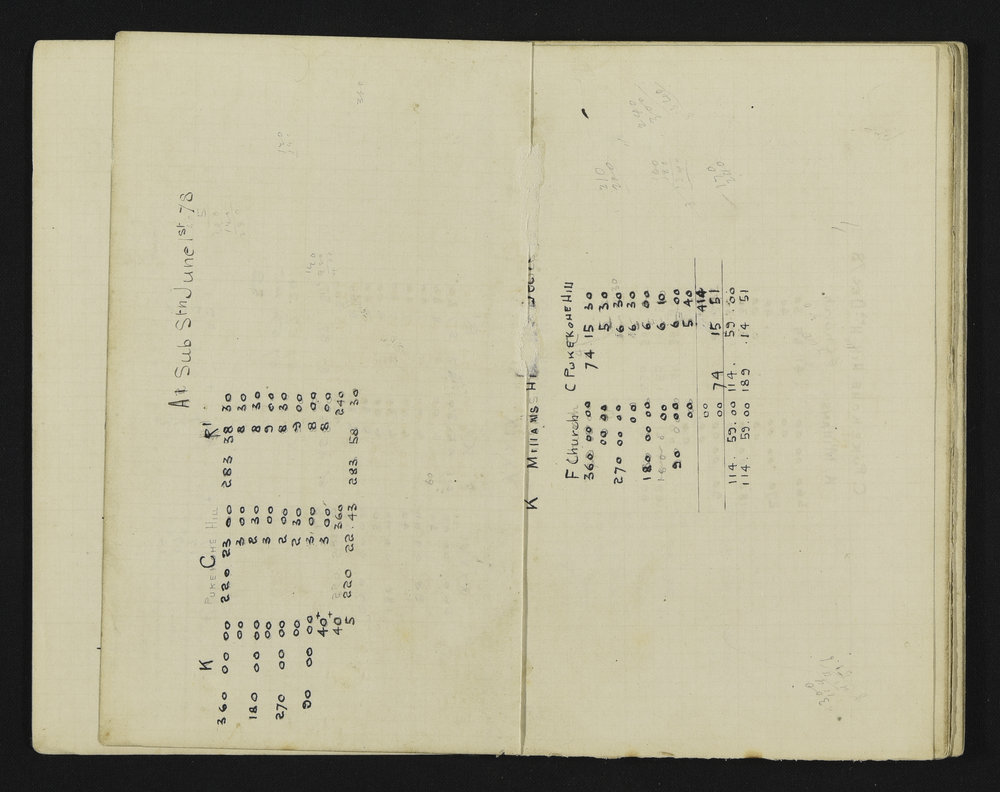 At Sub Stn June 1st 78
K Pukekohe Hill C R'
360 00 00 220 23 00 283 38 30
00 3 00 8 30
180 00 00 2 30 8 30
00 3 00 9 00
270 00 00 2 00 8 30
00 2 30 9 00
90 00 00 3 00 8 00
40+ 3 00 8 00
40+ 360 240
5 220 22.43 283 58 30
K Millans
F Church C Pukekohe Hill
360 00 00 74 15 30
00 00 5 30
270 00 00 6 30
00 6 30
180 00 00 6 00
00 6 10
90 00 00 6 00
00 5 40
00 414
00 74 15 51
114. 59.00 114. 59 00
114. 59.00 189 .14 51